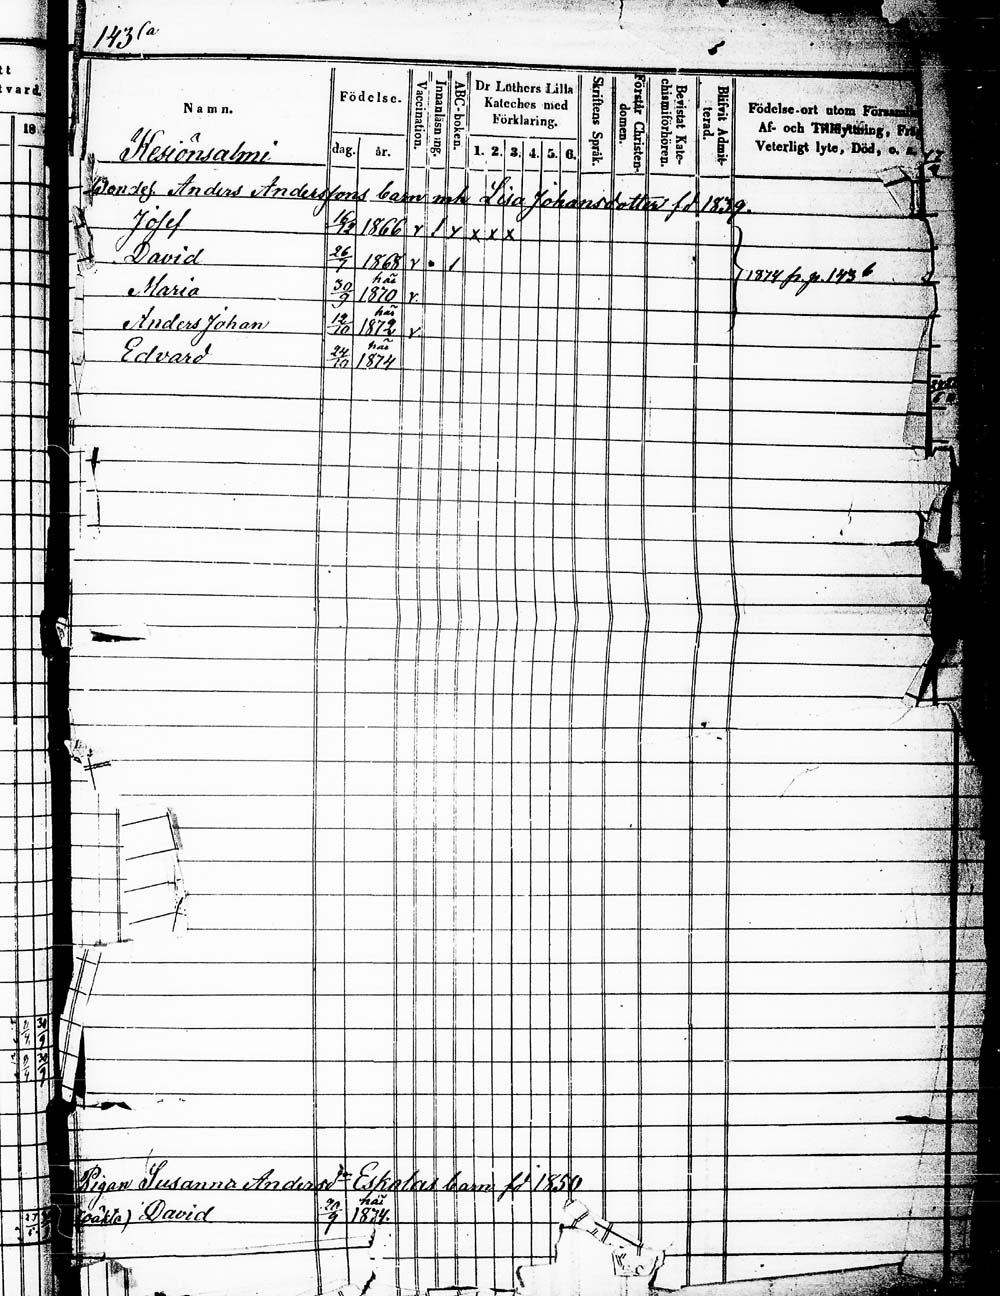 143 a
Namn.
Födelse.
dag. år.
Vaccination.
Innanläsning.
ABC-boken.
Dr Luthers Lilla
Kateches med
Förklaring.
1. 2. 3. 4. 5. 6.
Skriftens Språk.
Förstår Christen-
domen.
Bevistat Kate-
chismiförhören.
Blifvit Admit-
terad.
Födelse-ort utom Församl
Af- och Tillflyttning, Frä
Veterligt lyte, Död, o. s.
18
Kesiönsalmi
Anders Anderssons barn mh Lisa Johansdotter fd 1839.
Josef 1866 v 1 v x x x
David 26/7 1868 v 1
1874 fr. p. 143 b
Maria 30/9 här 1870 v.
Anders Johan 12/10 här 1872 v
Edvard 24/10 här 1874
Pigan Susanna Andersdr Eskolas barn fd 1850
(oäkta) David 20/9 här 1874.